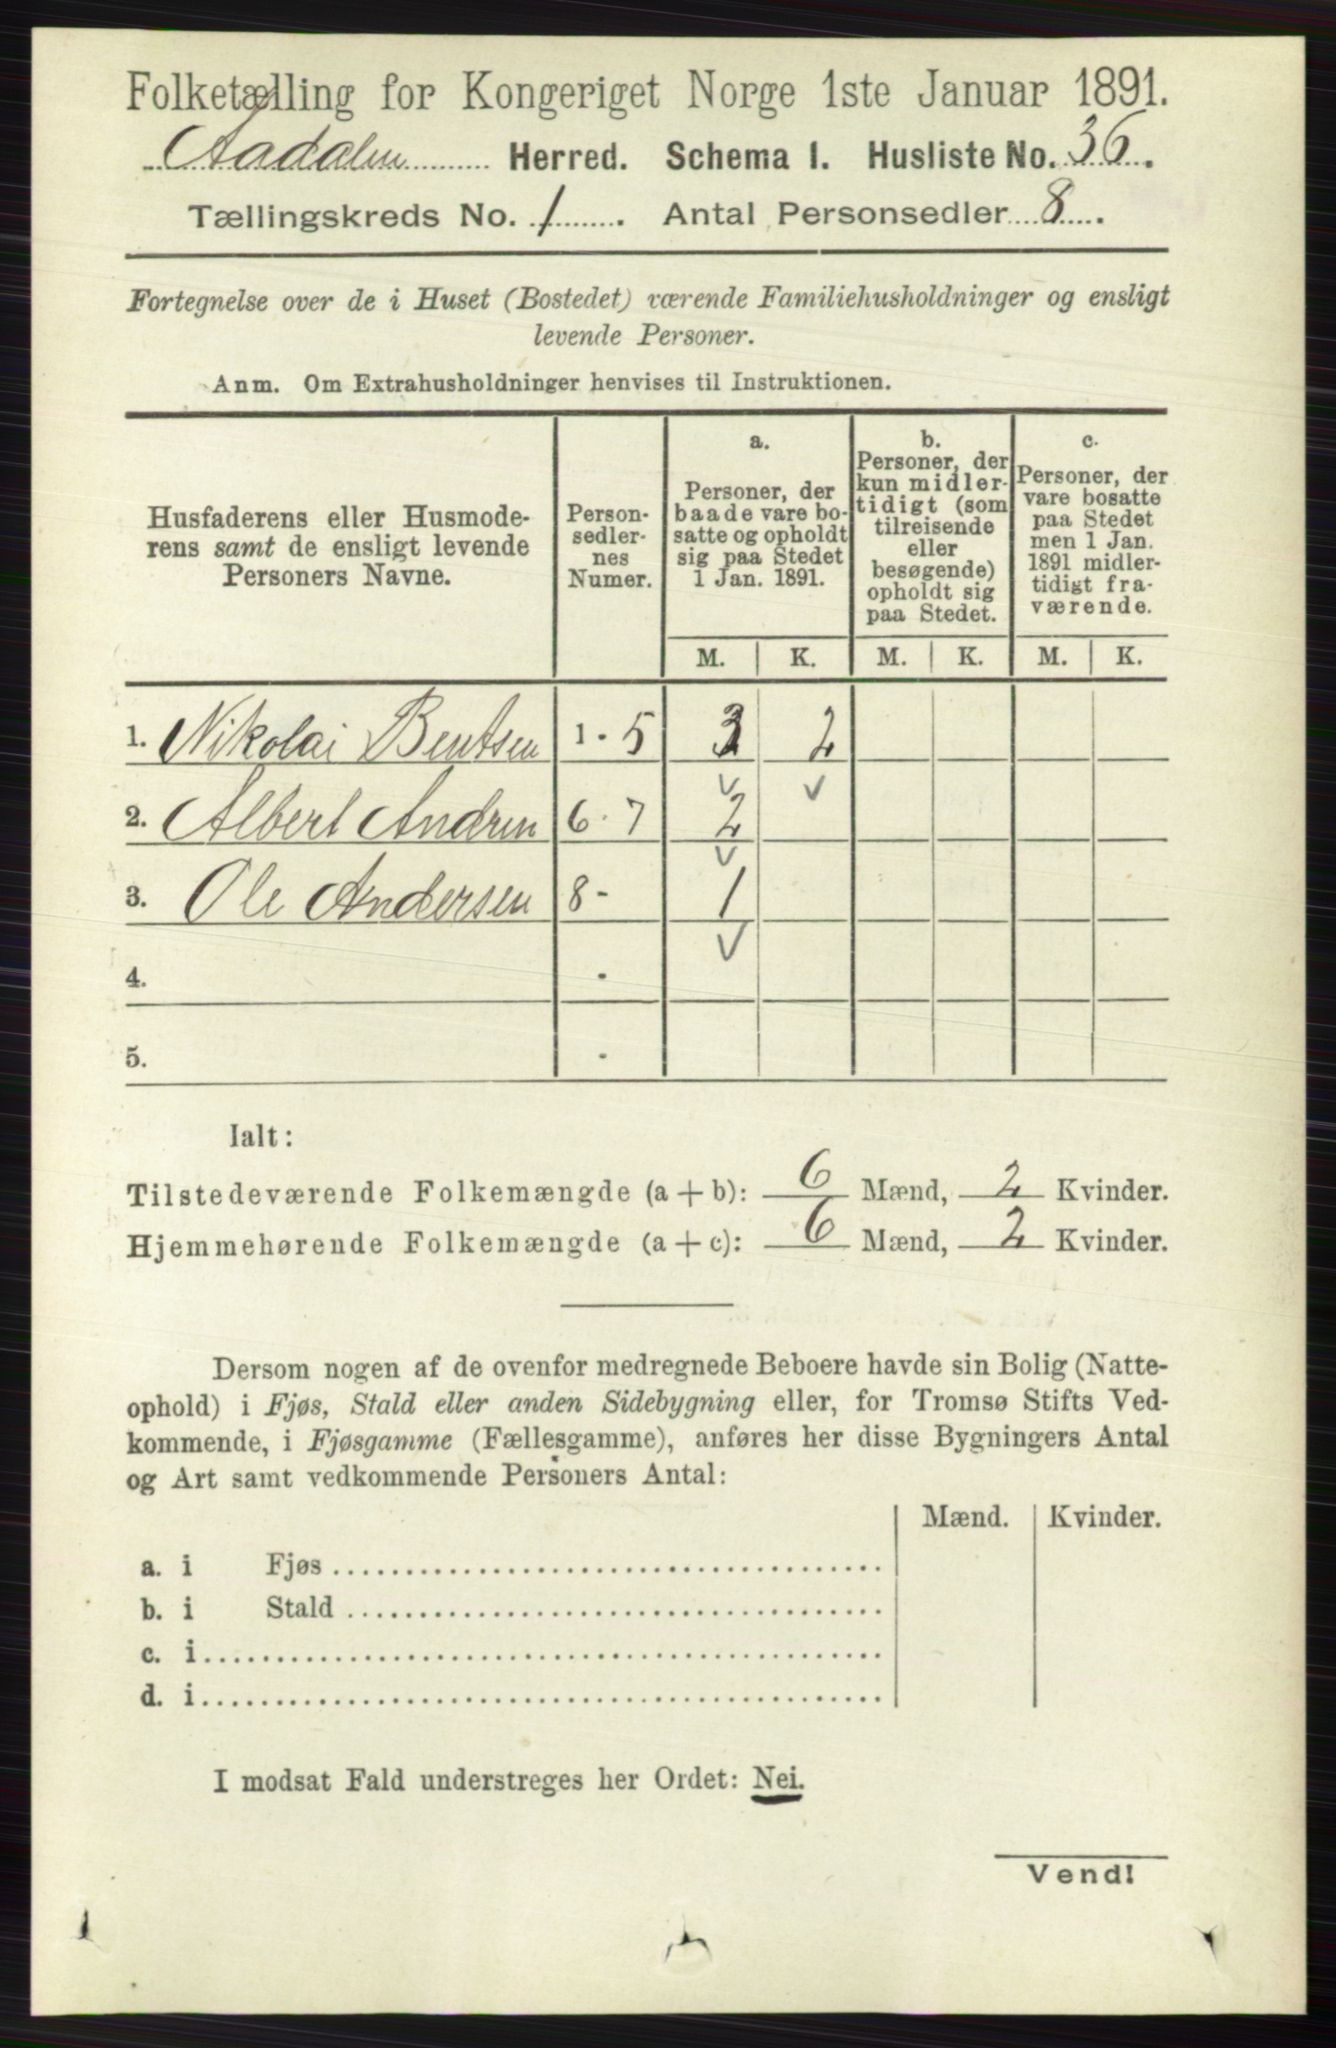 Folketælling for Kongeriget Norge 1ste Januar 1891.
Aadalen Herred. Schema 1. Husliste No. 36.
Tællingskreds No. 1. Antal Personsedler 8.
Fortegnelse over de i Huset (Bostedet) værende Familiehusholdninger og ensligt
levende Personer.
Anm. Om Extrahusholdninger henvises til Instruktionen.
Husfaderens eller Husmode-
rens samt de ensligt levende
Personers Navne.
Person-
sedler-
nes
Numer.
a.
Personer, der
baade vare bo-
satte og opholdt
sig paa Stedet
1 Jan. 1891.
b.
Personer, der
kun midler-
tidigt (som
tilreisende
eller
besøgende)
opholdt sig
paa Stedet.
c.
Personer, der
vare bosatte
paa Stedet
men 1 Jan.
1891 midler-
tidigt fra-
værende.
M. K. M. K. M. K.
1. Nikolai Bentsen 1 - 5 3 2
2. Albert Andren 6 - 7 2
3. Ole Andersen 8 - 1
4. -
5. -
Ialt:
Tilstedeværende Folkemængde (a + b): 6 Mænd, 2 Kvinder.
Hjemmehørende Folkemængde (a + c): 6 Mænd, 2 Kvinder.
Dersom nogen af de ovenfor medregnede Beboere havde sin Bolig (Natte-
ophold) i Fjøs, Stald eller anden Sidebygning eller, for Tromsø Stifts Ved-
kommende, i Fjøsgamme (Fællesgamme), anføres her disse Bygningers Antal
og Art samt vedkommende Personers Antal:
Mænd. Kvinder.
a. i Fjøs
b. i Stald
c. i
d. i
I modsat Fald understreges her Ordet: Nei.
Vend!